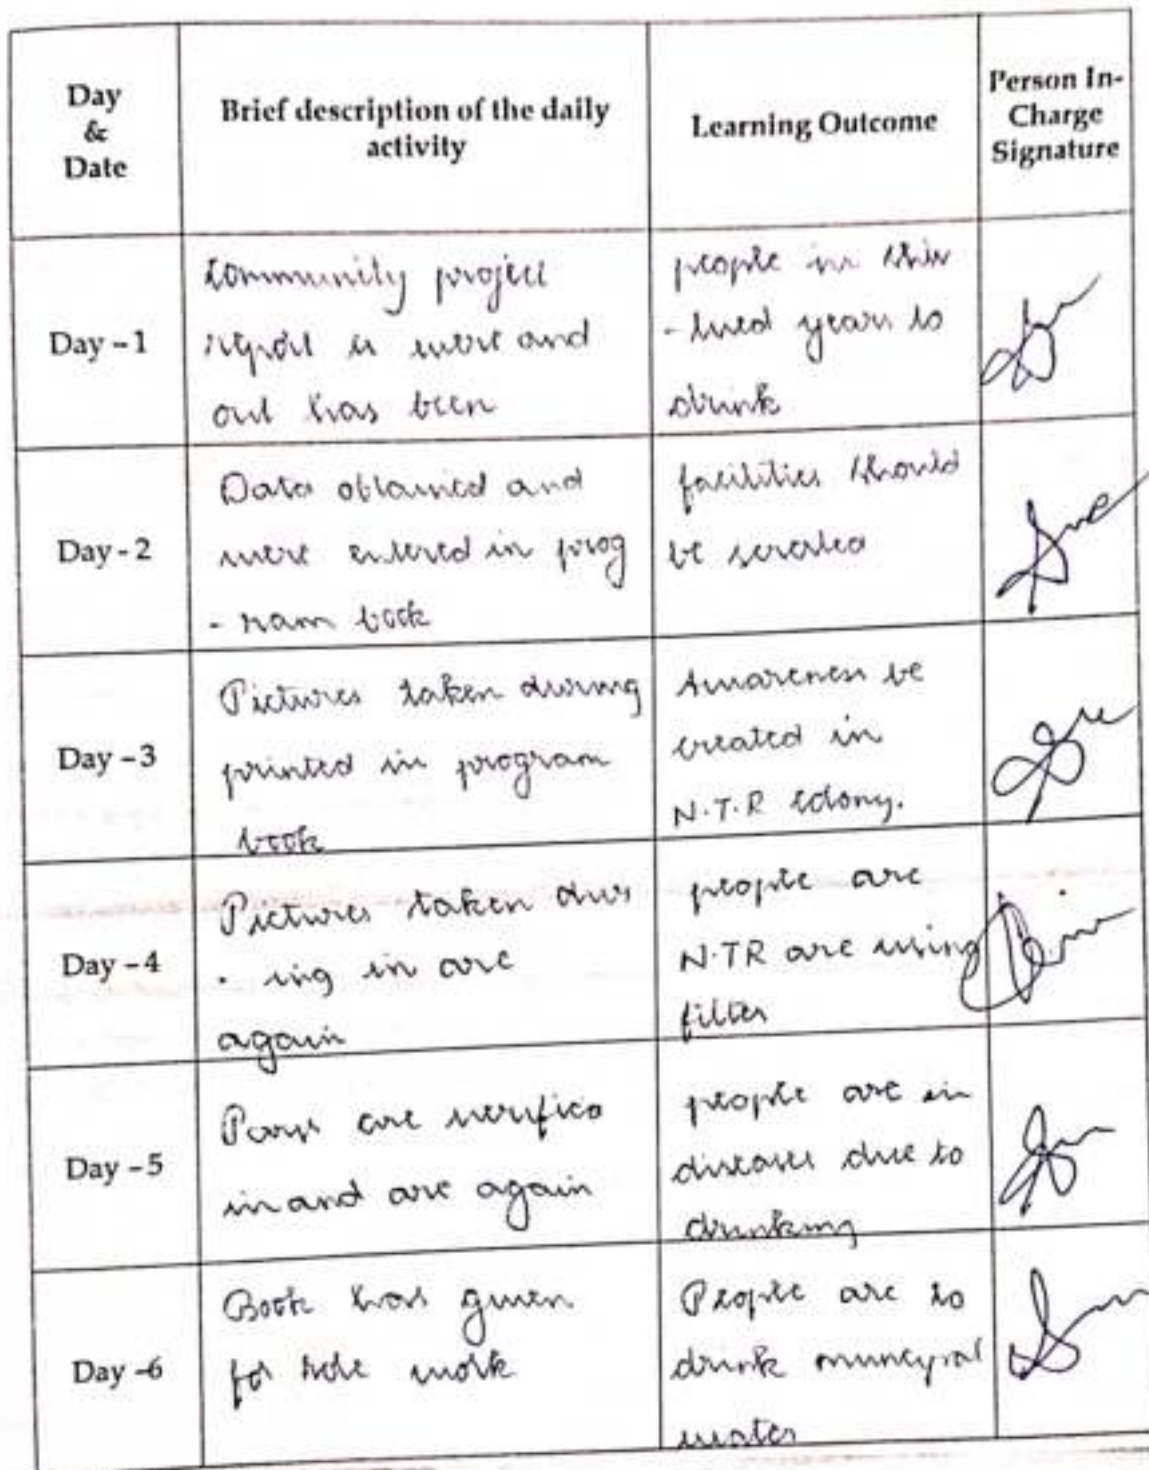 Day
&
Date
Brief description of the daily
activity
Learning Outcome
Person In-
Charge
Signature
Day - 1
Community project
report is were and
out has been
people in
years to
drink
Day - 2
Data obtained and
were entered in prog
- ram book
facilities should
be
Day - 3
Pictures taken during
printed in program
book
Awareness be
created in
N.T.R colony.
Day - 4
Pictures taken dur
- ing in are
again
people are
N.TR are using
filter
Day - 5
are
in and are again
people are in
diseases due to
drinking
Day -6
Book has given
for work
People are to
drink
water